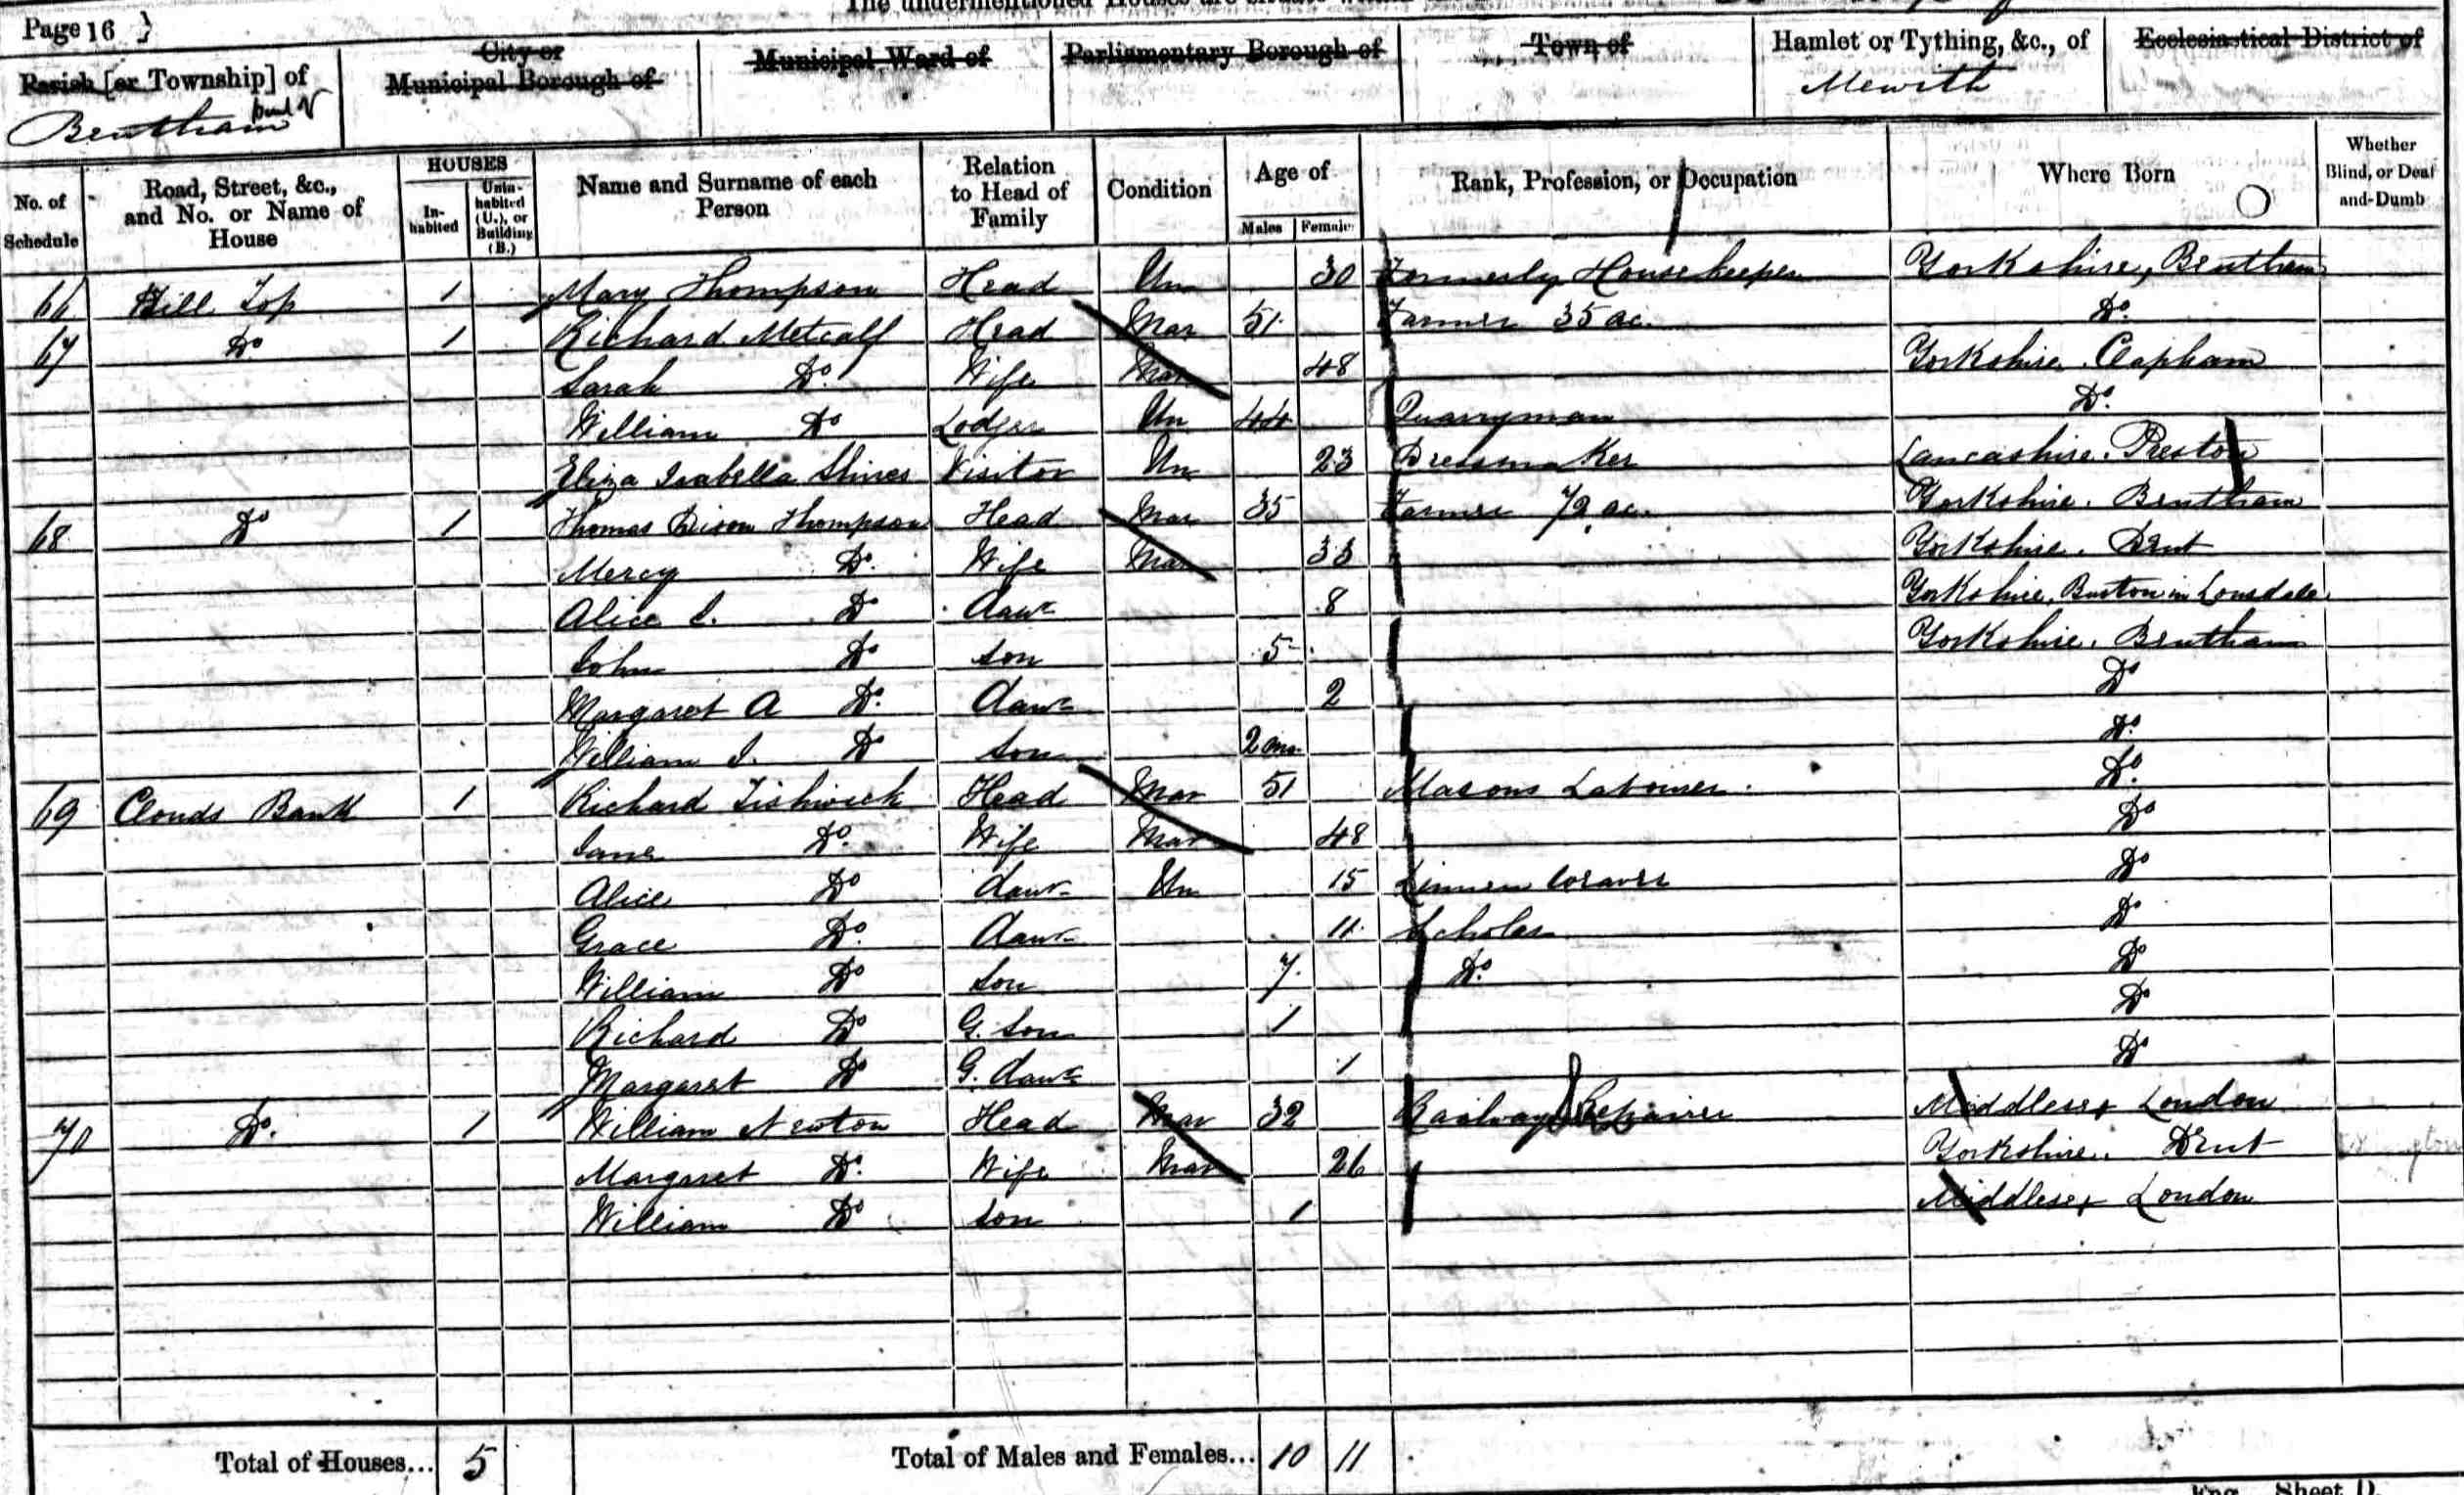 The undermentioned Houses are situate
Page 16 }
Parish [or Township] of
Bentham part of
City or
Municipal Borough of
Municipal Ward of
Parliamentary Borough of
Town of
Hamlet or Tything, &c., of
Mewith
Ecclesiastical District of
No. of Schedule
Road, Street, &c., and No. or Name of House
HOUSES
In-habited
Unin-habited (U.), or Building (B.)
Name and Surname of each Person
Relation to Head of Family
Condition
Age of
Males
Females
Rank, Profession, or Occupation
Where Born
Whether Blind, or Deaf-and-Dumb
66 Hill Top 1 Mary Thompson Head Un 30 Formerly Housekeeper Yorkshire, Bentham
67 Do 1 Richard Metcalf Head Mar 51 Farmer 35 ac. Do.
Sarah Do. Wife Mar 48 Yorkshire. Clapham
William Do Lodger Un 44 Quarryman Do.
Eliza Isabella Shires Visitor Un 23 Dressmaker Lancashire. Preston
68 Do 1 Thomas Dixon Thompson Head Mar 35 Farmer 72 ac. Yorkshire. Bentham
Mercy Do. Wife Mar 33 Yorkshire. Dent
Alice Do Daur 8 Yorkshire, Burton in Lonsdale
John Do son 5 Yorkshire. Bentham
Margaret A Do. daur 2 Do
William Do son 2 mo Do.
69 Clouds Bank 1 Richard Fishwick Head Mar 51 Masons Labourer Do.
Jane Do. Wife Mar 48 Do
Alice Do daur Un 15 Linnen Weaver Do
Grace Do. Daur 11 Scholar Do
William Do Son 7 Do. Do
Richard Do G. Son 1 Do
Margaret Do G. daur 1 Do
70 Do. 1 William Newton Head Mar 32 Railway Repairer Middlesex London
Margaret Do. Wife Mar 26 Yorkshire. Dent
William Do son 1 Middlesex London
Total of Houses... 5 Total of Males and Females... 10 11
Eng.—Sheet D.